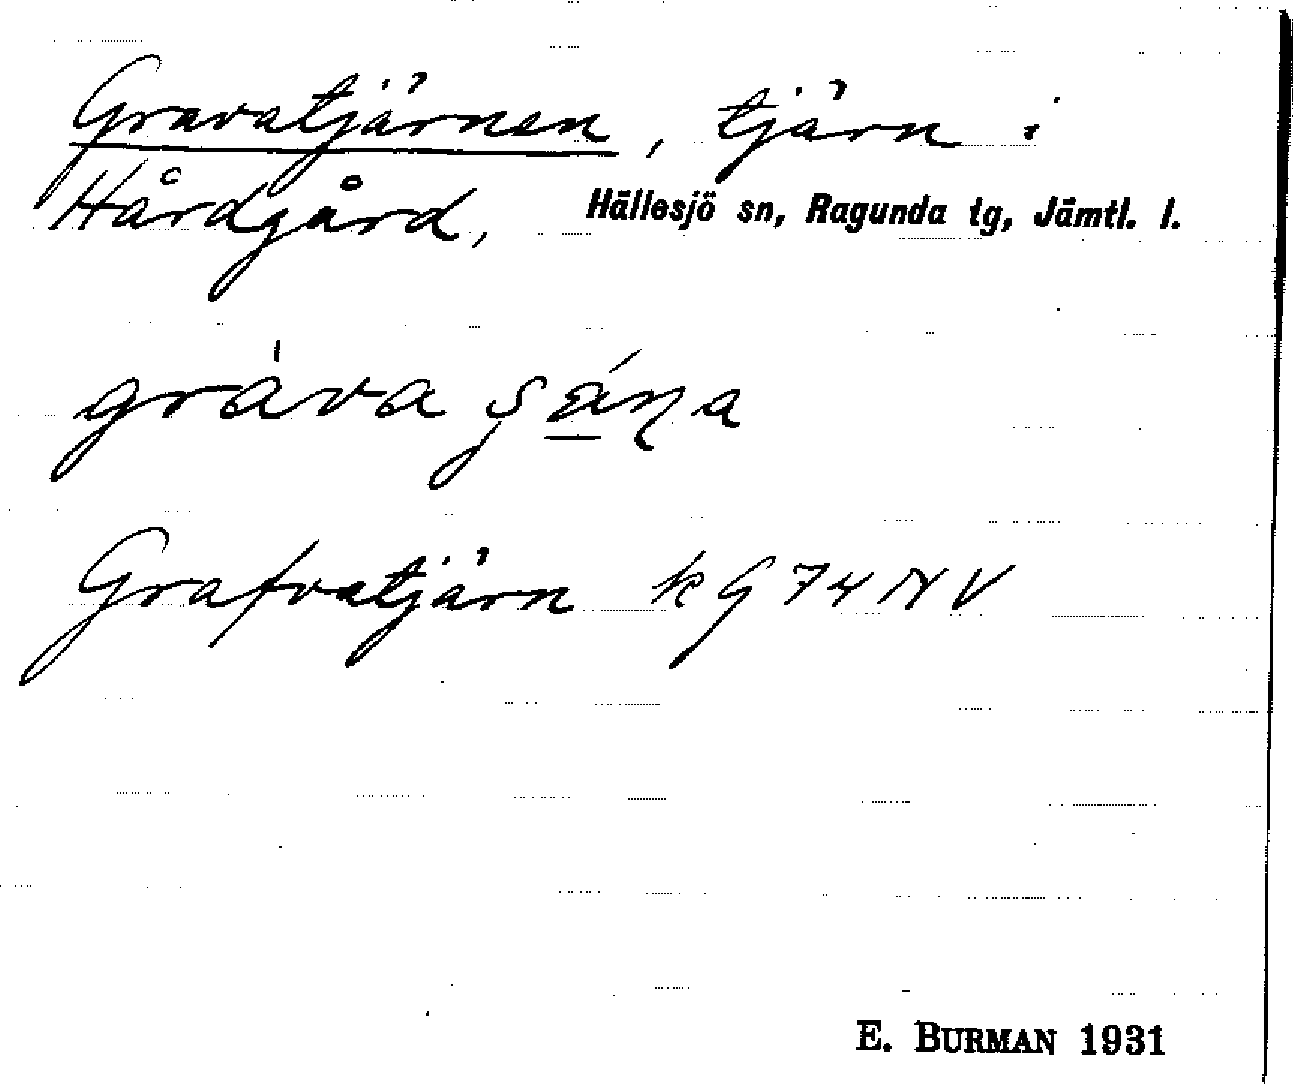 Gravatjärnen, tjärn i
Hårdgård, Hällesjö sn, Ragunda tg, Jämtl. l.
gràva
Grafvatjärn kG 74 NV
E. BURMAN 1931